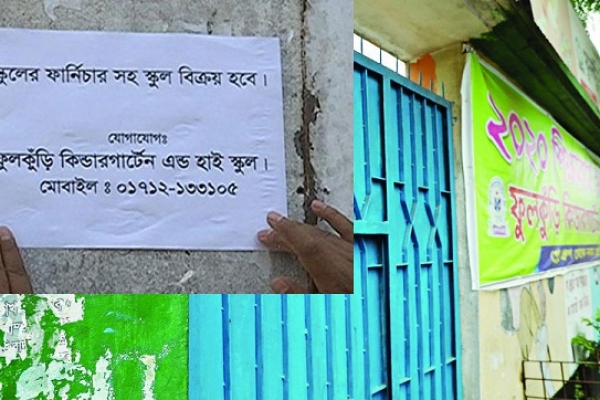 স্কুলের ফার্নিচার সহ স্কুল বিক্রয় হবে।
যোগাযোগঃ
ফুলকুঁড়ি কিন্ডারগার্টেন এন্ড হাই স্কুল।
মোবাইল : ০১৭১২-১৩৩১০৫
২০২০
ফুলকুঁড়ি কিন্ডারগার্টেন